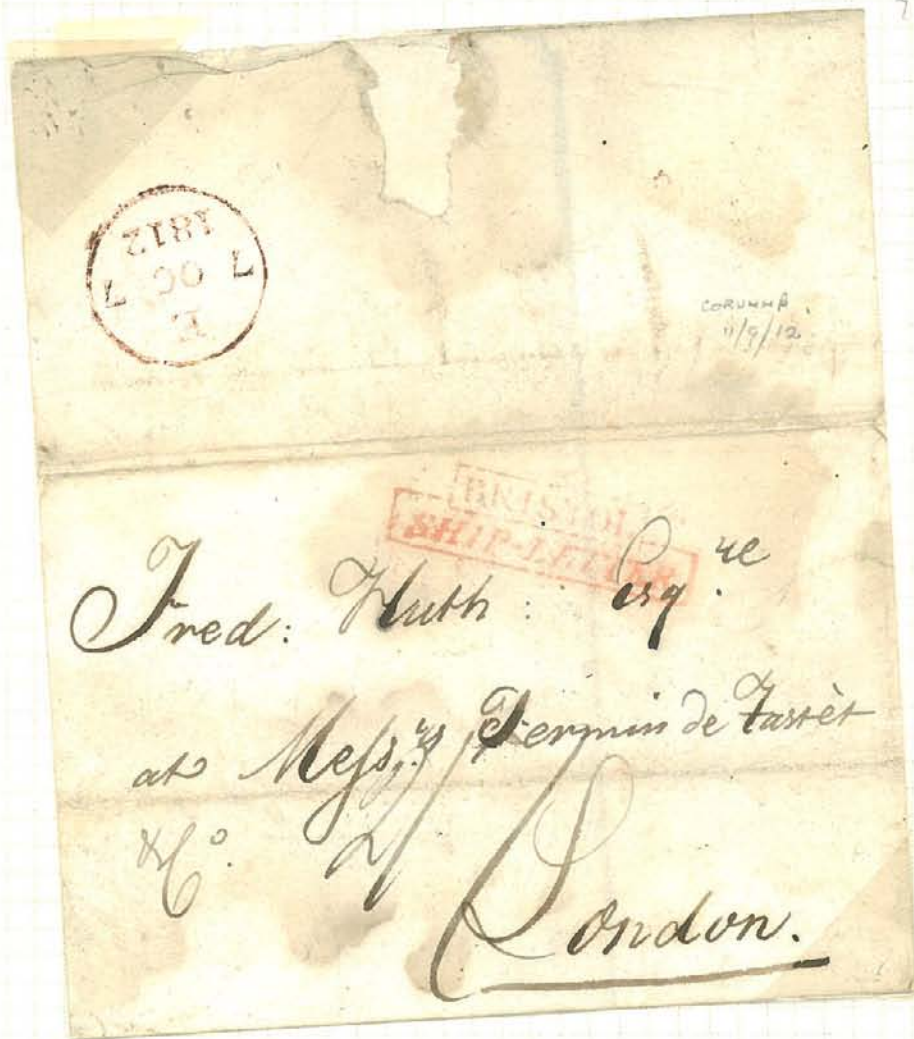 1812
7 OC 7
E
CORUNNA.
11/9/12.
BRISTOL
SHIP-LETTER
Fred: Huth: Esq.re
at Messrs. Fermin de Tastèt
&Co. 2/
London.